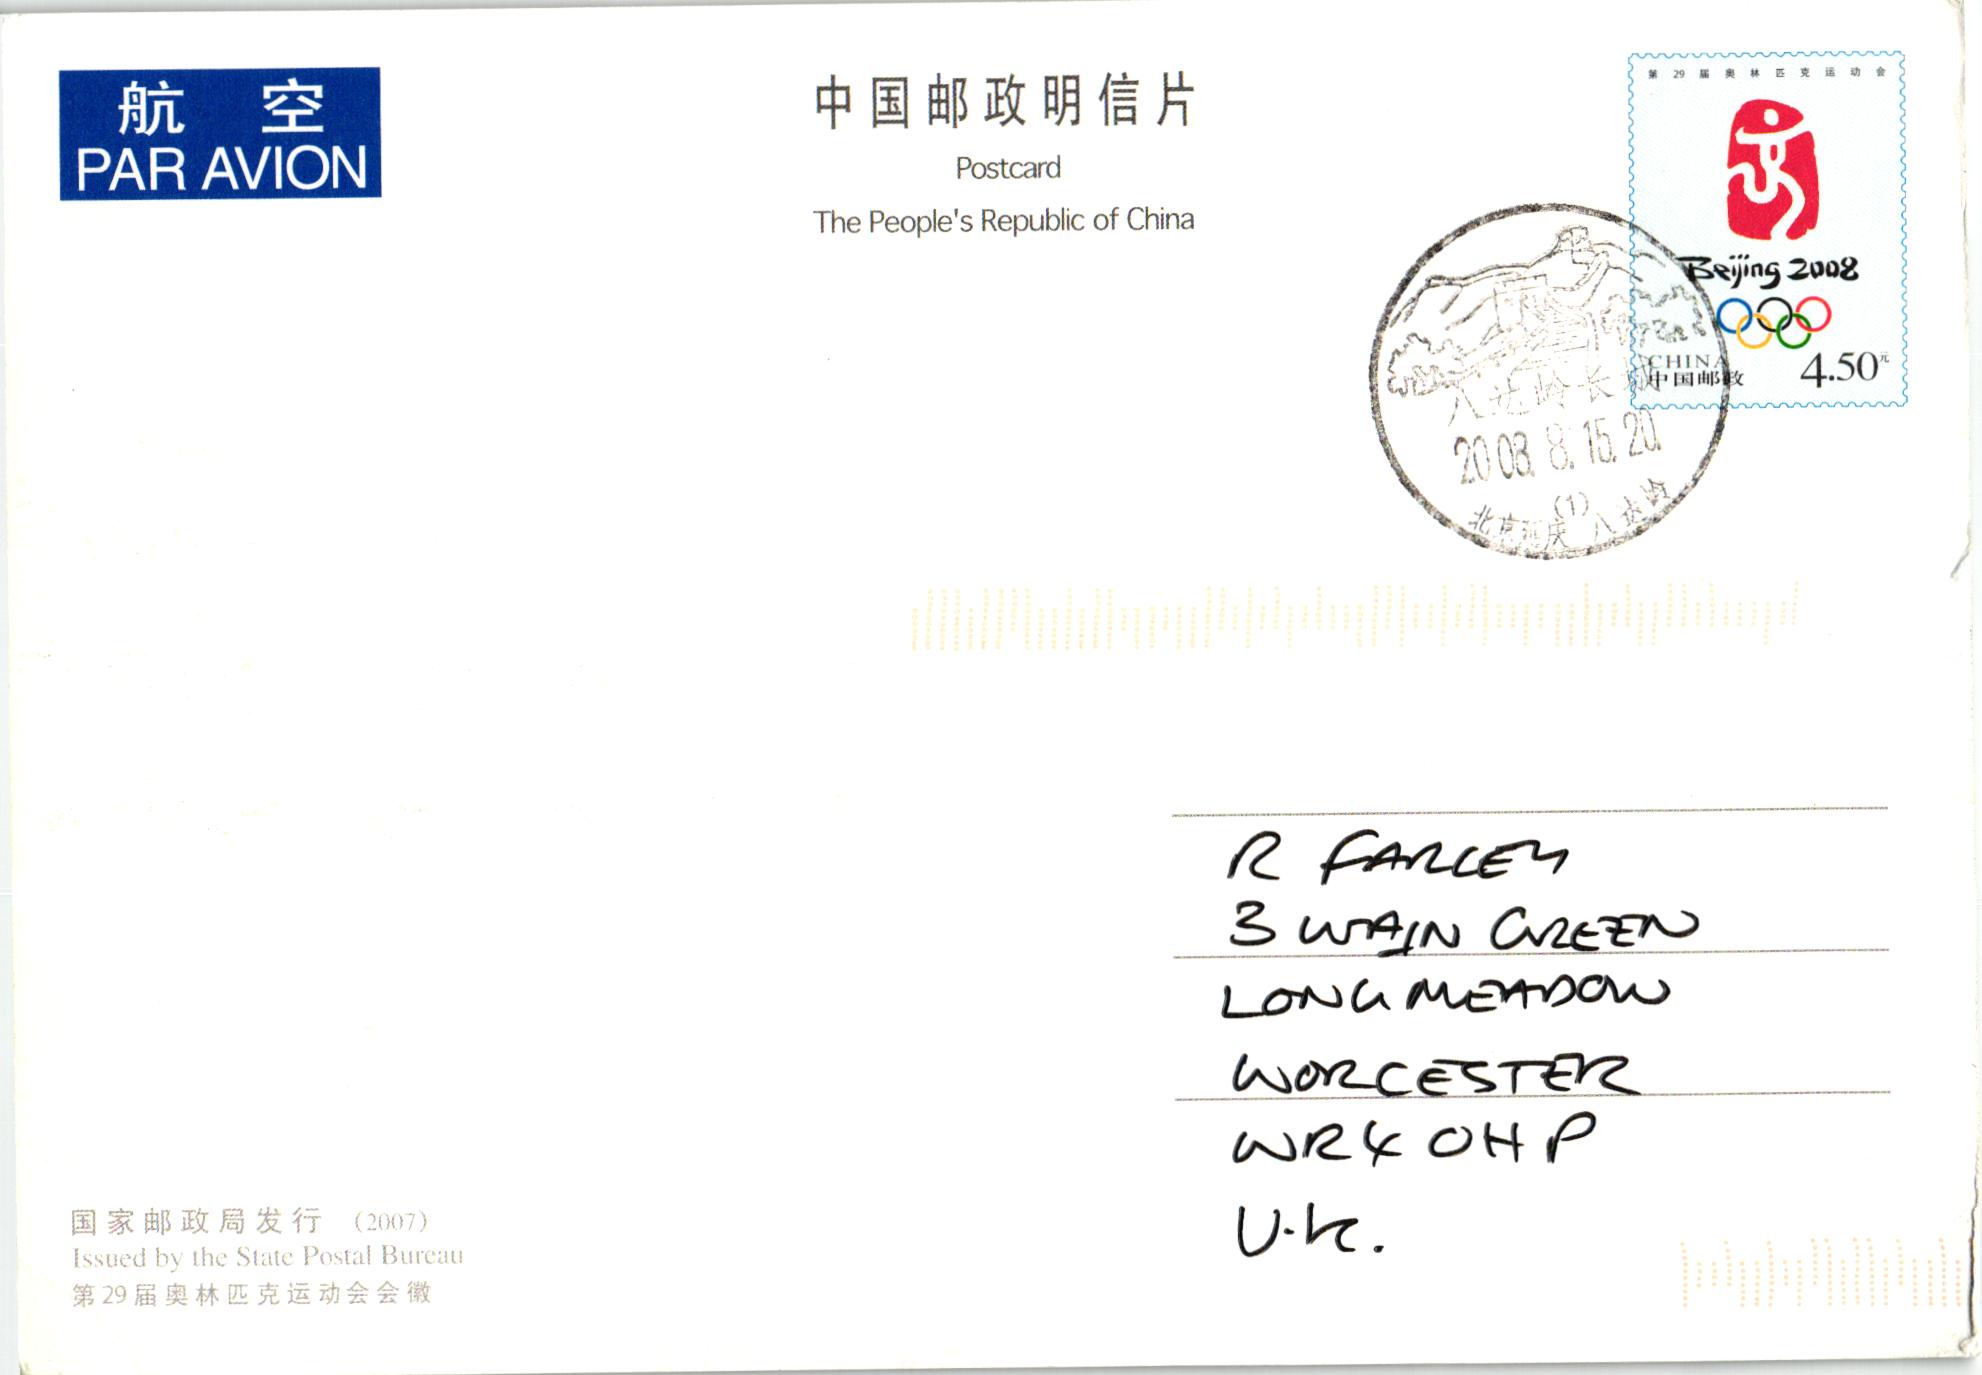 航 空
PAR AVION
中国邮政明信片
Postcard
The People's Republic of China
第29届奥林匹克运动会
Beijing 2008
CHINA
中国邮政
4.50元
八达岭长城
2008.8.15.20.
(1)
北京延庆 八达岭
R FARLEY
3 WAIN GREEN
LONG MEADOW
WORCESTER
WR4 0HP
U.K.
国家邮政局发行 (2007)
Issued by the State Postal Bureau
第29届奥林匹克运动会会徽